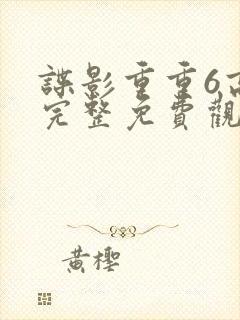 諜影重重6高
完整免費觀
黃櫻